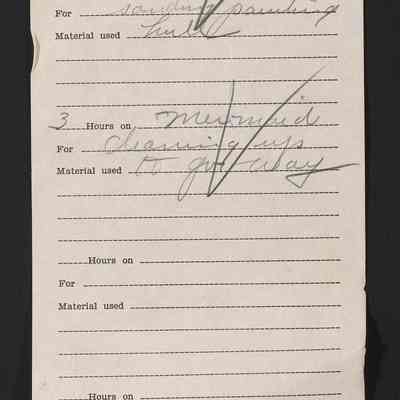 For sanding painting
Material used hull
3 Hours on Mermaid
For Cleaning up
Material used to go away
Hours on
For
Material used
Hours on